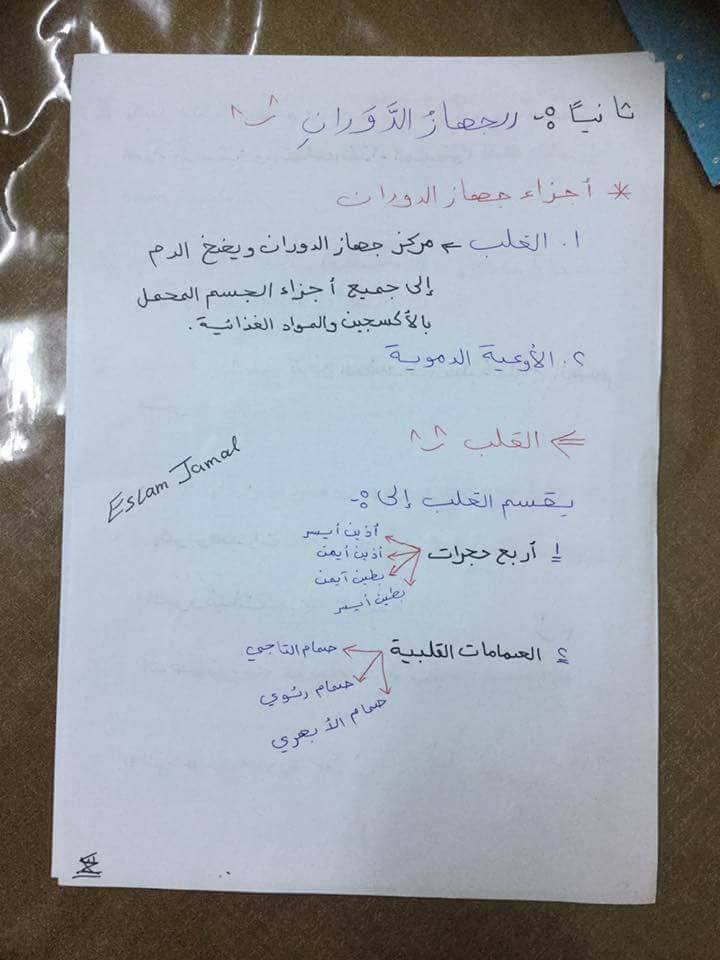 ثانيًا :- الجهازُ الدَّوَرانِ
* أجزاء جهاز الدوران
١. القلب ← مركز جهاز الدوران ويضخ الدم
إلى جميع أجزاء الجسم المحمل
بالأكسجين والمواد الغذائية.
٢. الأوعية الدموية
← القلب
يقسم القلب إلى :-
١ أربع حجرات
أذين أيسر
أذين أيمن
بطين أيمن
بطين أيسر
٢ الصمامات القلبية
صمام التاجي
صمام رئوي
صمام الأبهري
Eslam Jamal